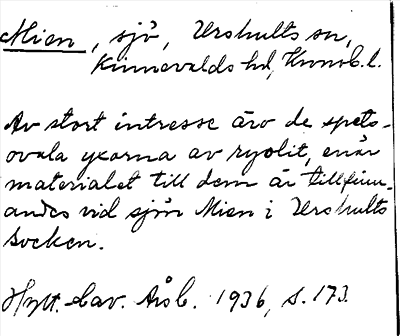 Mien, sjö, Urshults sn,
Kinnevalds hd, Kronob. l.
Av stort intresse äro de spets-
ovala yxorna av ryolit, enär
materialet till dem är tillfinn-
andes vid sjön Mien i Urshults
socken.
Hylt.-Cav. Årsb. 1936, s. 173.